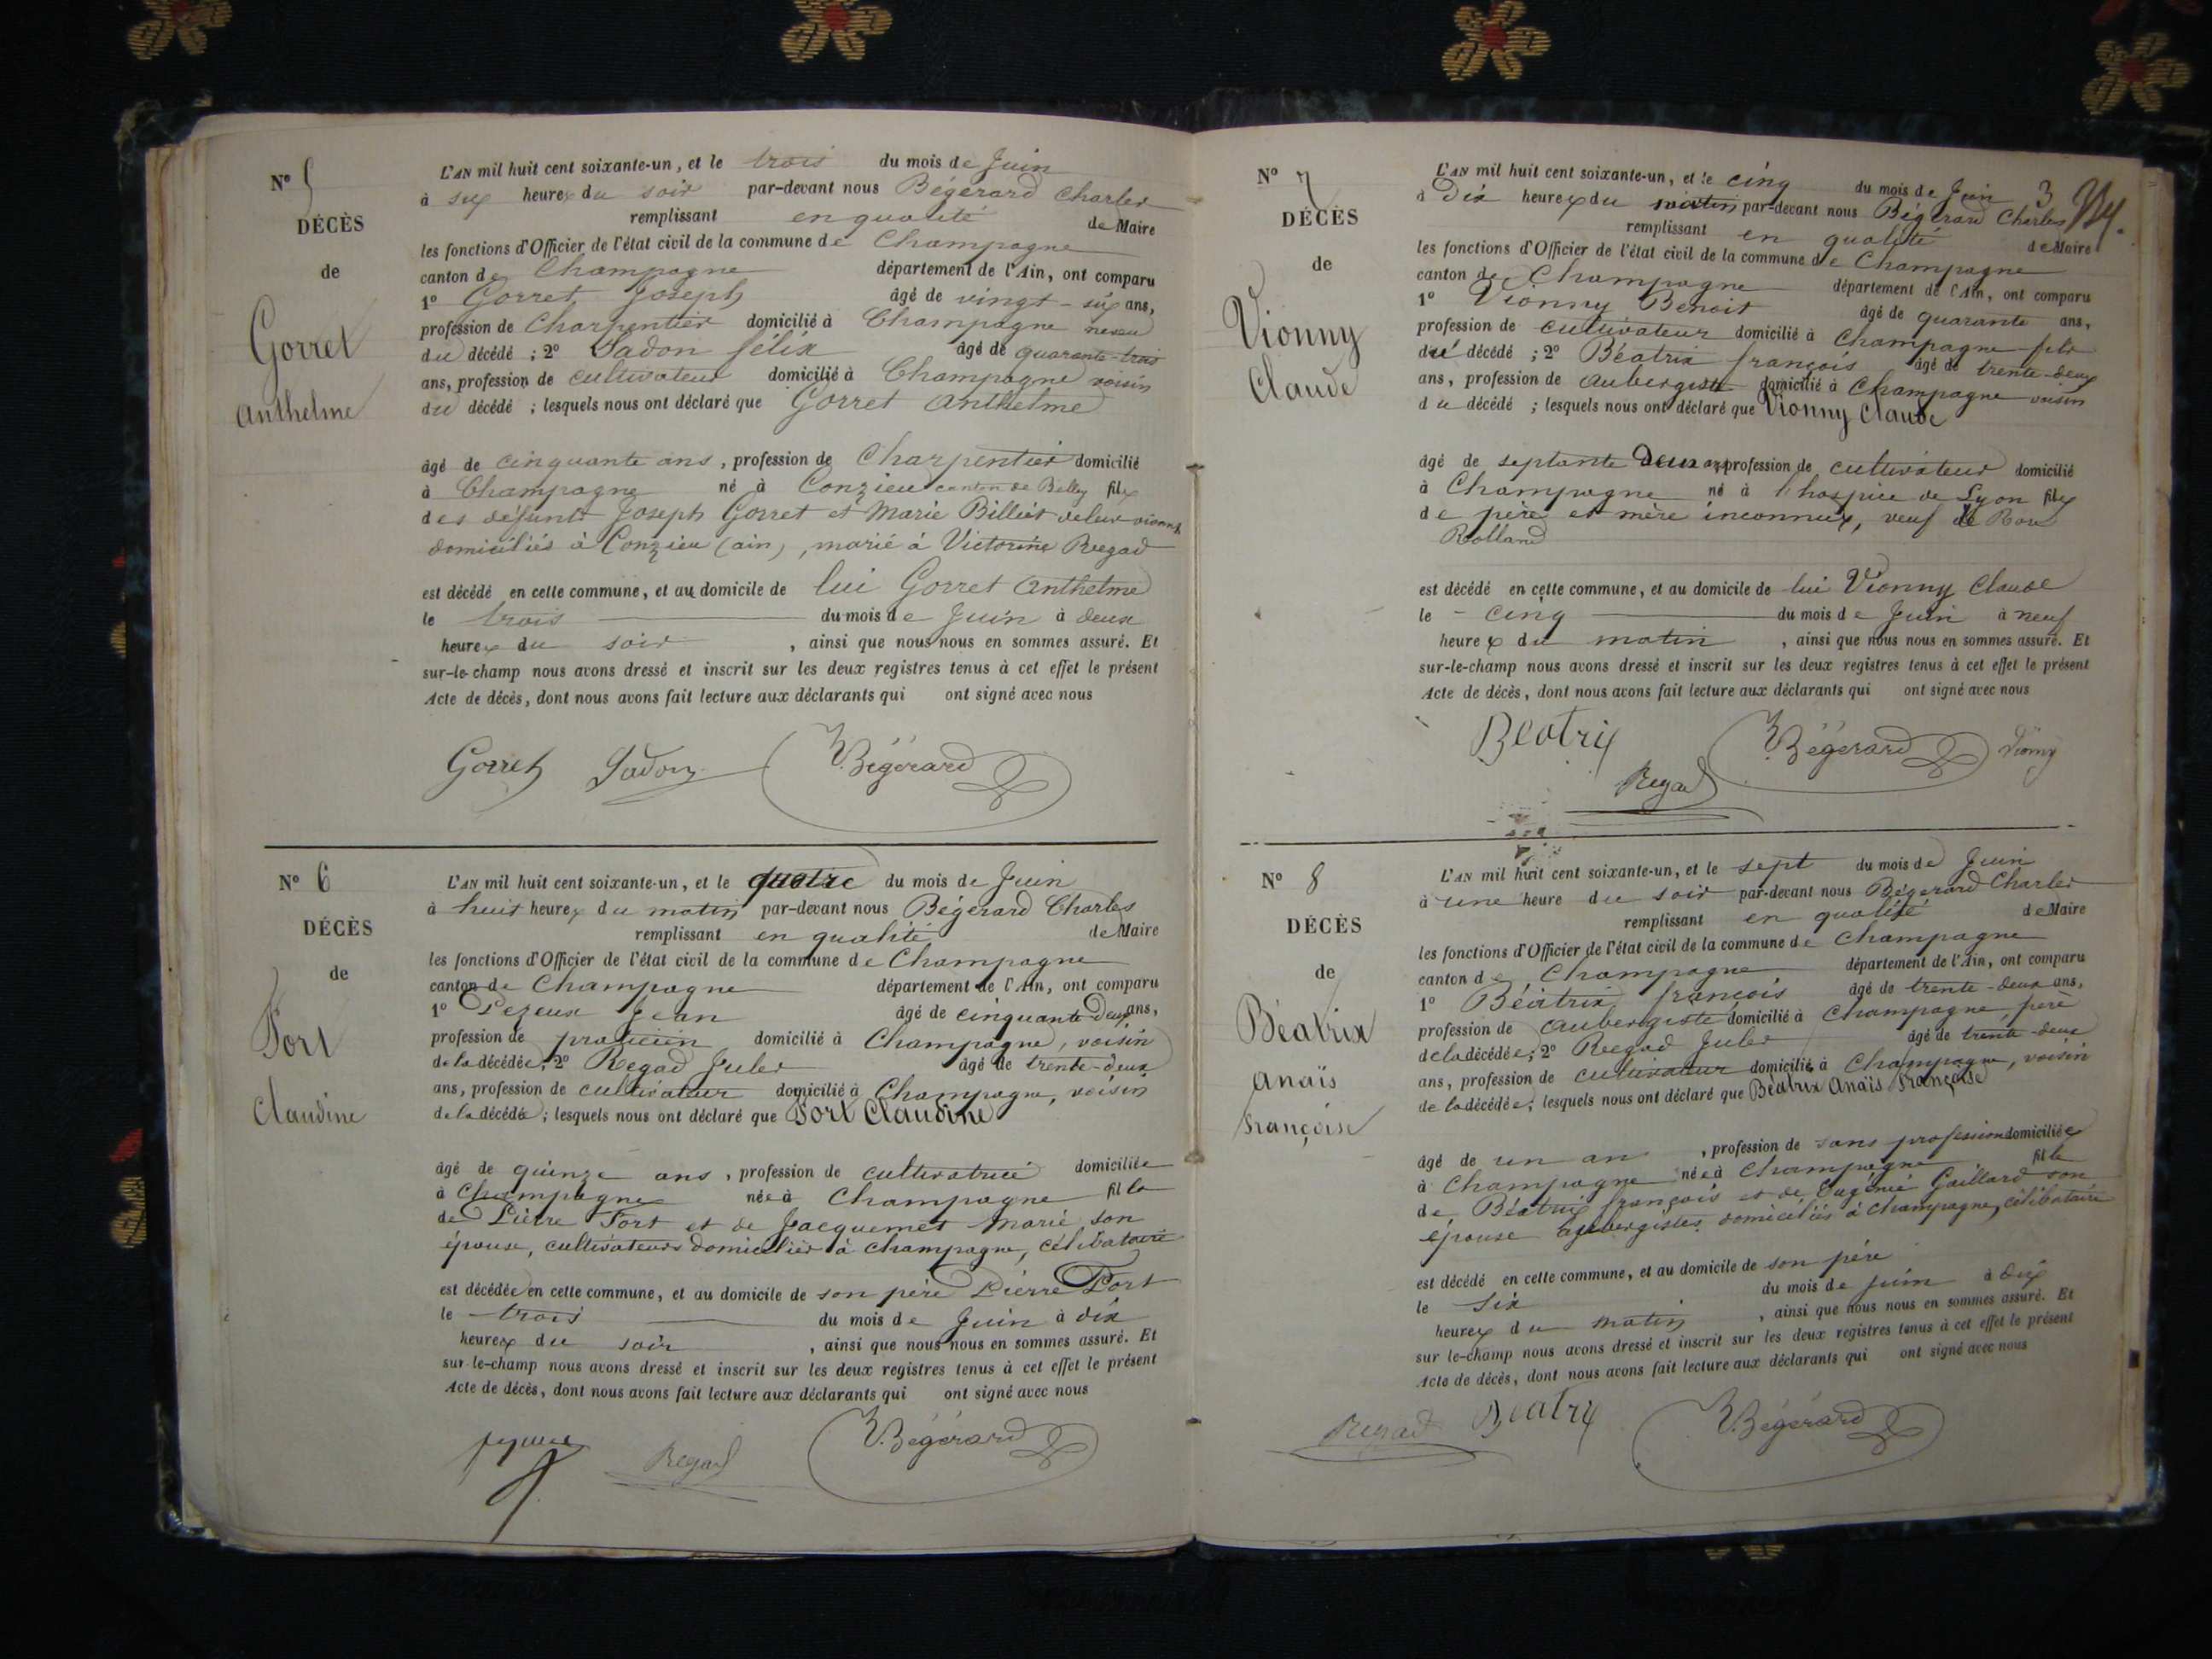 N° 5
DÉCÈS
de
Gorret
Anthelme
L'AN mil huit cent soixante-un, et le trois du mois de Juin
à six heures du soir par-devant nous Bégérard Charles
remplissant en qualité de Maire
les fonctions d'Officier de l'état civil de la commune de Champagne
canton de Champagne département de l'Ain, ont comparu
1° Gorret Joseph âgé de vingt-six ans,
profession de Charpentier domicilié à Champagne neveu
du décédé ; 2° Sadon félix âgé de quarante-trois
ans, profession de cultivateur domicilié à Champagne voisin
du décédé ; lesquels nous ont déclaré que Gorret Anthelme
âgé de cinquante ans, profession de Charpentier domicilié
à Champagne né à Conzieu canton de Belley fils
des défunts Joseph Gorret et Marie Billiet de leur vivant
domiciliés à Conzieu (ain), marié à Victorine Regad
est décédé en cette commune, et au domicile de lui Gorret Anthelme
le trois du mois de Juin à deux
heures du soir, ainsi que nous nous en sommes assuré. Et
sur-le-champ nous avons dressé et inscrit sur les deux registres tenus à cet effet le présent
Acte de décès, dont nous avons fait lecture aux déclarants qui ont signé avec nous
Gorret Sadon Bégérard
N° 6
DÉCÈS
de
Port
Claudine
L'AN mil huit cent soixante-un, et le quatre du mois de Juin
à huit heures du matin par-devant nous Bégérard Charles
remplissant en qualité de Maire
les fonctions d'Officier de l'état civil de la commune de Champagne
canton de Champagne département de l'Ain, ont comparu
1° Pezeux Jean âgé de cinquante-deux ans,
profession de praticien domicilié à Champagne, voisin
de la décédée ; 2° Regad Jules âgé de trente-deux
ans, profession de cultivateur domicilié à Champagne, voisin
de la décédée ; lesquels nous ont déclaré que Port Claudine
âgé de quinze ans, profession de cultivatrice domiciliée
à Champagne née à Champagne fille
de Pierre Port et de Jacquemet Marie son
épouse, cultivateurs domiciliés à Champagne, célibataire
est décédée en cette commune, et au domicile de son père Pierre Port
le trois du mois de Juin à dix
heures du soir, ainsi que nous nous en sommes assuré. Et
sur-le-champ nous avons dressé et inscrit sur les deux registres tenus à cet effet le présent
Acte de décès, dont nous avons fait lecture aux déclarants qui ont signé avec nous
Regad Bégérard
N° 7
DÉCÈS
de
Vionny
Claude
3
L'AN mil huit cent soixante-un, et le cinq du mois de Juin
à Dix heures du matin par-devant nous Bégérard Charles
remplissant en qualité de Maire
les fonctions d'Officier de l'état civil de la commune de Champagne
canton de Champagne département de l'Ain, ont comparu
1° Vionny Benoit âgé de quarante ans,
profession de cultivateur domicilié à Champagne fils
du décédé ; 2° Béatrix françois âgé de trente-deux
ans, profession de aubergiste domicilié à Champagne voisin
du décédé ; lesquels nous ont déclaré que Vionny Claude
âgé de septante Deux ans profession de cultivateur domicilié
à Champagne né à l'hospice de Lyon fils
de père et mère inconnus, veuf de Rose
Rolland
est décédé en cette commune, et au domicile de lui Vionny Claude
le cinq du mois de Juin à neuf
heures du matin, ainsi que nous nous en sommes assuré. Et
sur-le-champ nous avons dressé et inscrit sur les deux registres tenus à cet effet le présent
Acte de décès, dont nous avons fait lecture aux déclarants qui ont signé avec nous
Béatrix Bégérard Viony
Regad
N° 8
DÉCÈS
de
Béatrix
Anaïs
françoise
L'AN mil huit cent soixante-un, et le sept du mois de Juin
à une heure du soir par-devant nous Bégérard Charles
remplissant en qualité de Maire
les fonctions d'Officier de l'état civil de la commune de Champagne
canton de Champagne département de l'Ain, ont comparu
1° Béatrix françois âgé de trente-deux ans,
profession de aubergiste domicilié à Champagne, père
de la décédée ; 2° Regad Jules âgé de trente-deux
ans, profession de cultivateur domicilié à Champagne, voisin
de la décédée ; lesquels nous ont déclaré que Béatrix Anaïs Françoise
âgé de un an, profession de sans profession domiciliée
à Champagne née à Champagne fille
de Béatrix françois et de Eugénie Gaillard son
épouse aubergistes domiciliés à Champagne, célibataire
est décédé en cette commune, et au domicile de son père
le six du mois de juin à dix
heures du matin, ainsi que nous nous en sommes assuré. Et
sur le-champ nous avons dressé et inscrit sur les deux registres tenus à cet effet le présent
Acte de décès, dont nous avons fait lecture aux déclarants qui ont signé avec nous
Regad Béatrix Bégérard